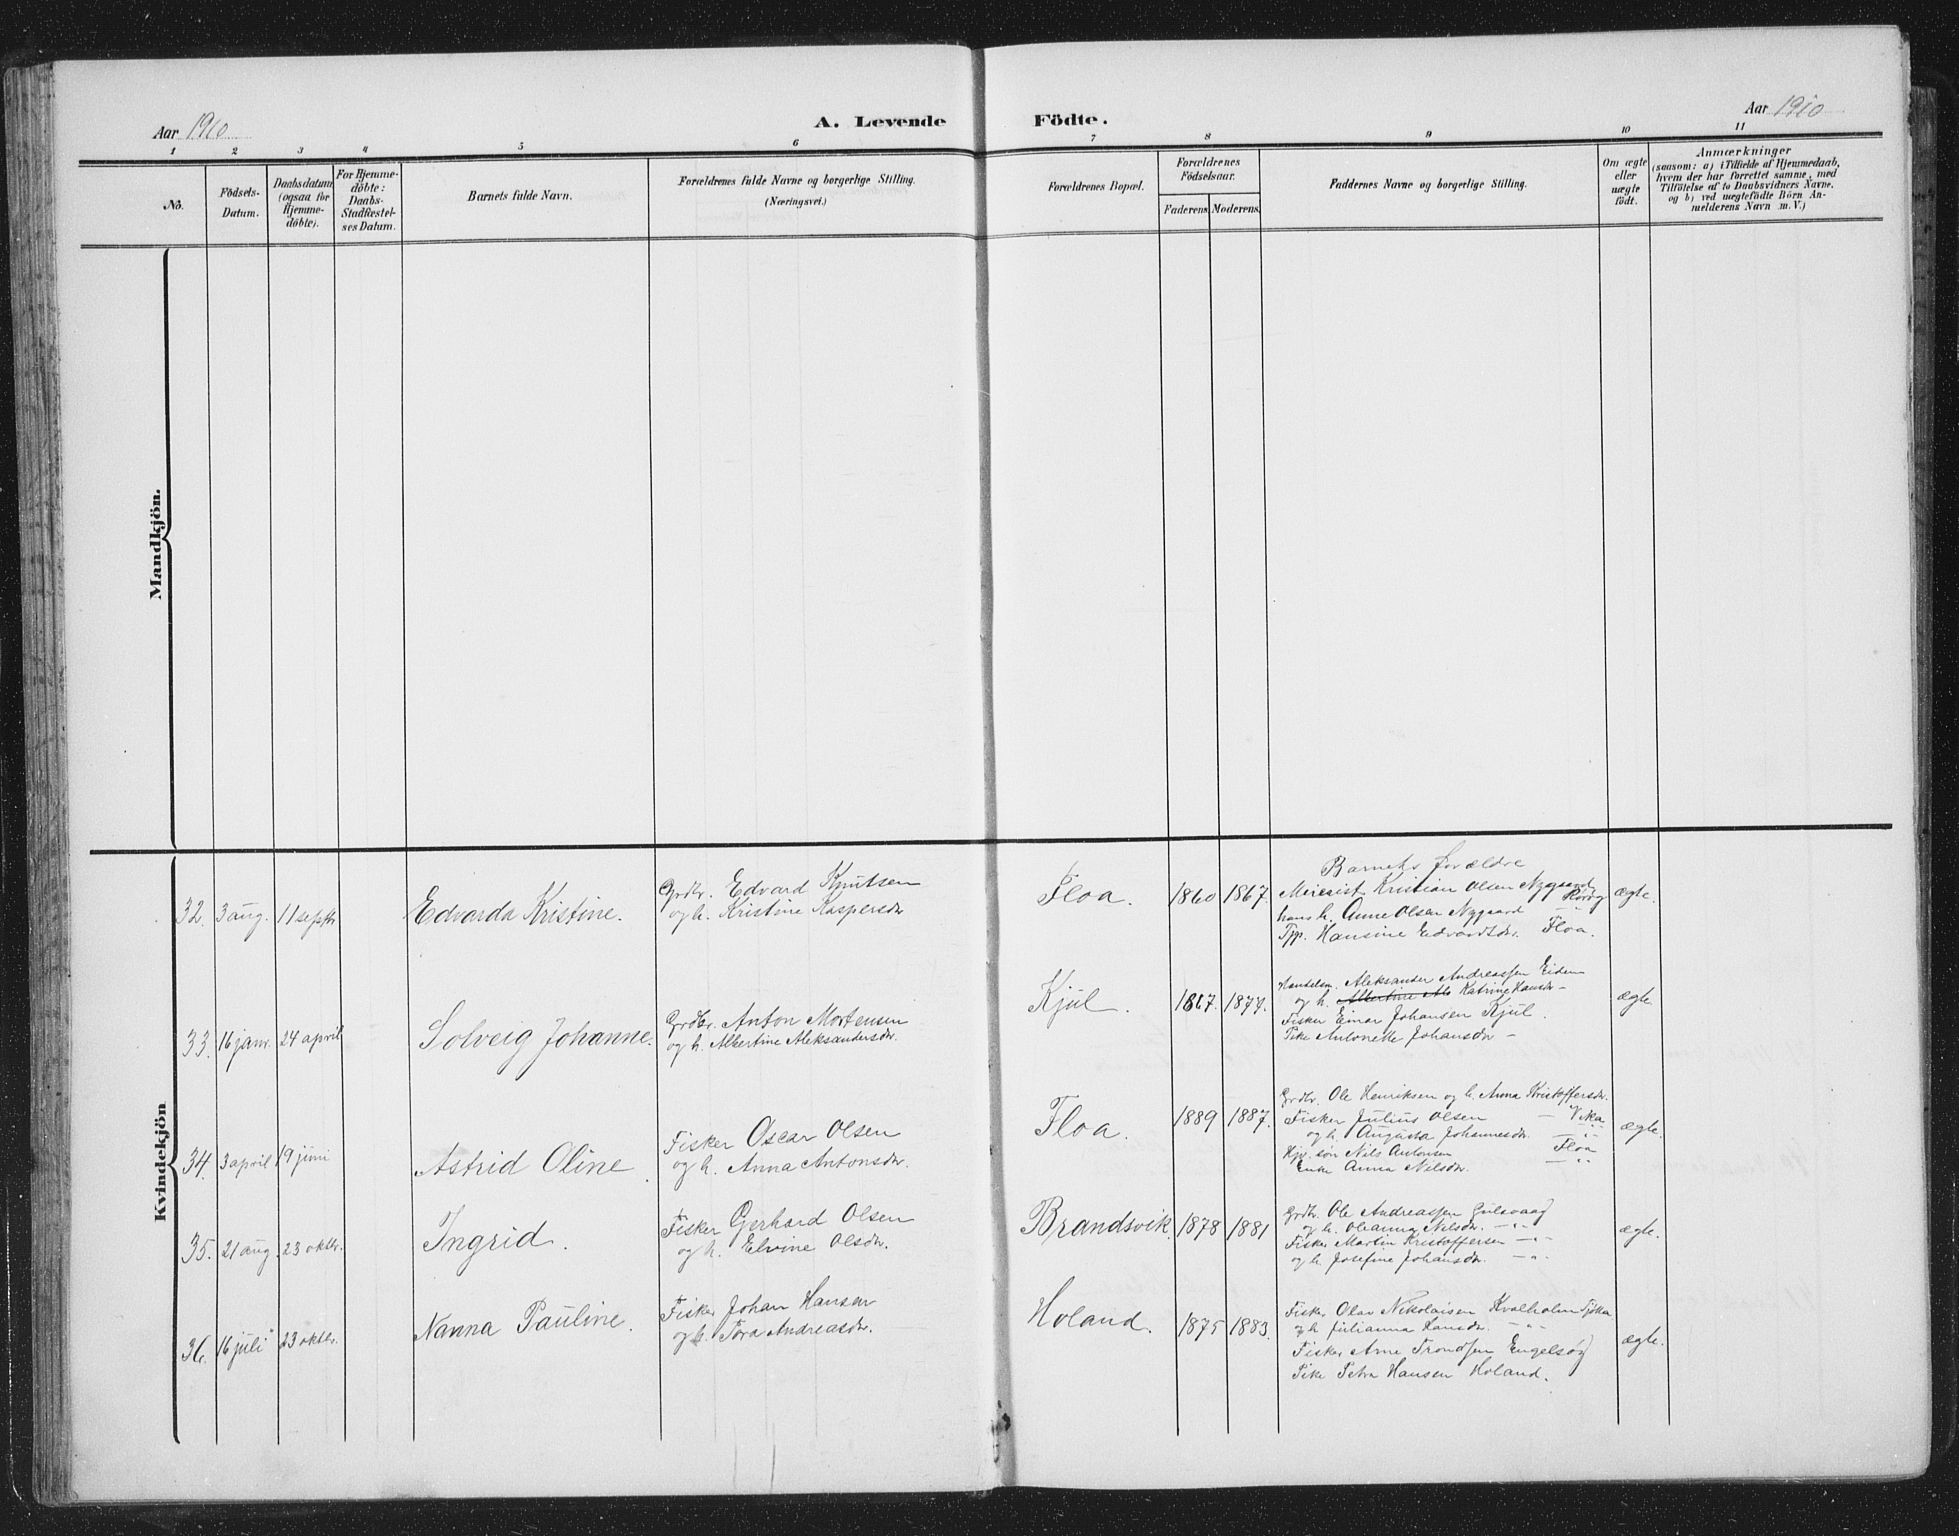 Aar 1910
A. Levende Födte.
Aar 1910
1 2 3 4 5 6 7 8 9 10 11
No.
Födsels-
Datum.
Daabsdatum
(ogsaa for
Hjemme-
döbte).
For Hjemme-
döbte:
Daabs-
Stadfestel-
ses Datum.
Barnets fulde Navn.
Forældrenes fulde Navne og borgerlige Stilling.
(Næringsvei.)
Forældrenes Bopæl.
Forældrenes
Födselsaar.
Faderens. Moderens.
Faddernes Navne og borgerlige Stilling.
Om ægte
eller
uægte
födt.
Anmærkninger
(saasom: a) i Tilfælde af Hjemmedaab,
hvem der har forrettet samme, med
Tilföielse af to Daabsvidners Navne,
og b) ved uægtefödte Börn An-
melderens Navn m. V.)
Mandkjön.
Kvindekjön
32. 3 aug. 11 septr. Edvarda Kristine.
Grdbr. Edvard Knutsen
og h. Kristine Kaspersdr
Floa. 1860 1867.
Barnets forældre
Meierist Kristian Olsen Nygaard Rörøy
hans h. Anne Olsen Nygaard —
Tjp. Hansine Edvardsdr. Floa.
ægte.
33. 16 janr. 24 april Solveig Johanne.
Grdbr. Anton Mortensen
og h. Albertine Aleksandersdr.
Kjul. 1867. 1874.
Handelsm. Aleksander Andreassen Eidem
og h. Albertine Als Katrine Hansdr —
Fisker Einar Johansen Kjul.
Pike Antonette Johansdr —
ægte.
34. 3 april 19 juni Astrid Oline.
Fisker Oscar Olsen
og h. Anna Antonsdr.
Floa. 1889 1887.
Grdbr. Ole Henriksen og h. Anna Kristoffersdr.
Fisker Julius Olsen — Vika
og h. Augusta Johannesdr. — " —
Hjp. søn Nils Antonsen Floa
Enke Anna Nilsdr. — " —
ægte.
35. 21 aug. 23 oktbr. Ingrid.
Fisker Gerhard Olsen
og h. Elvine Olsdr.
Brandsvik. 1878 1881
Grdbr. Ole Andreassen Gulsvaag
og h. Oleanna Nilsdr. — " —
Fisker Martin Kristoffersen — " —
og h. Josefine Johansdr. — " —
ægte.
36. 16 juli 23 oktbr. Nanna Pauline.
Fisker Johan Hansen
og h. Tora Andreasdr.
Holand. 1875 1883.
Fisker Olav Nikolaisen Kvalholm Tjøtta
og h julianna Hansdr. — " —
Fisker Arne Trondsen Engelsøy
Pike Petra Hansen Holand.
ægte.